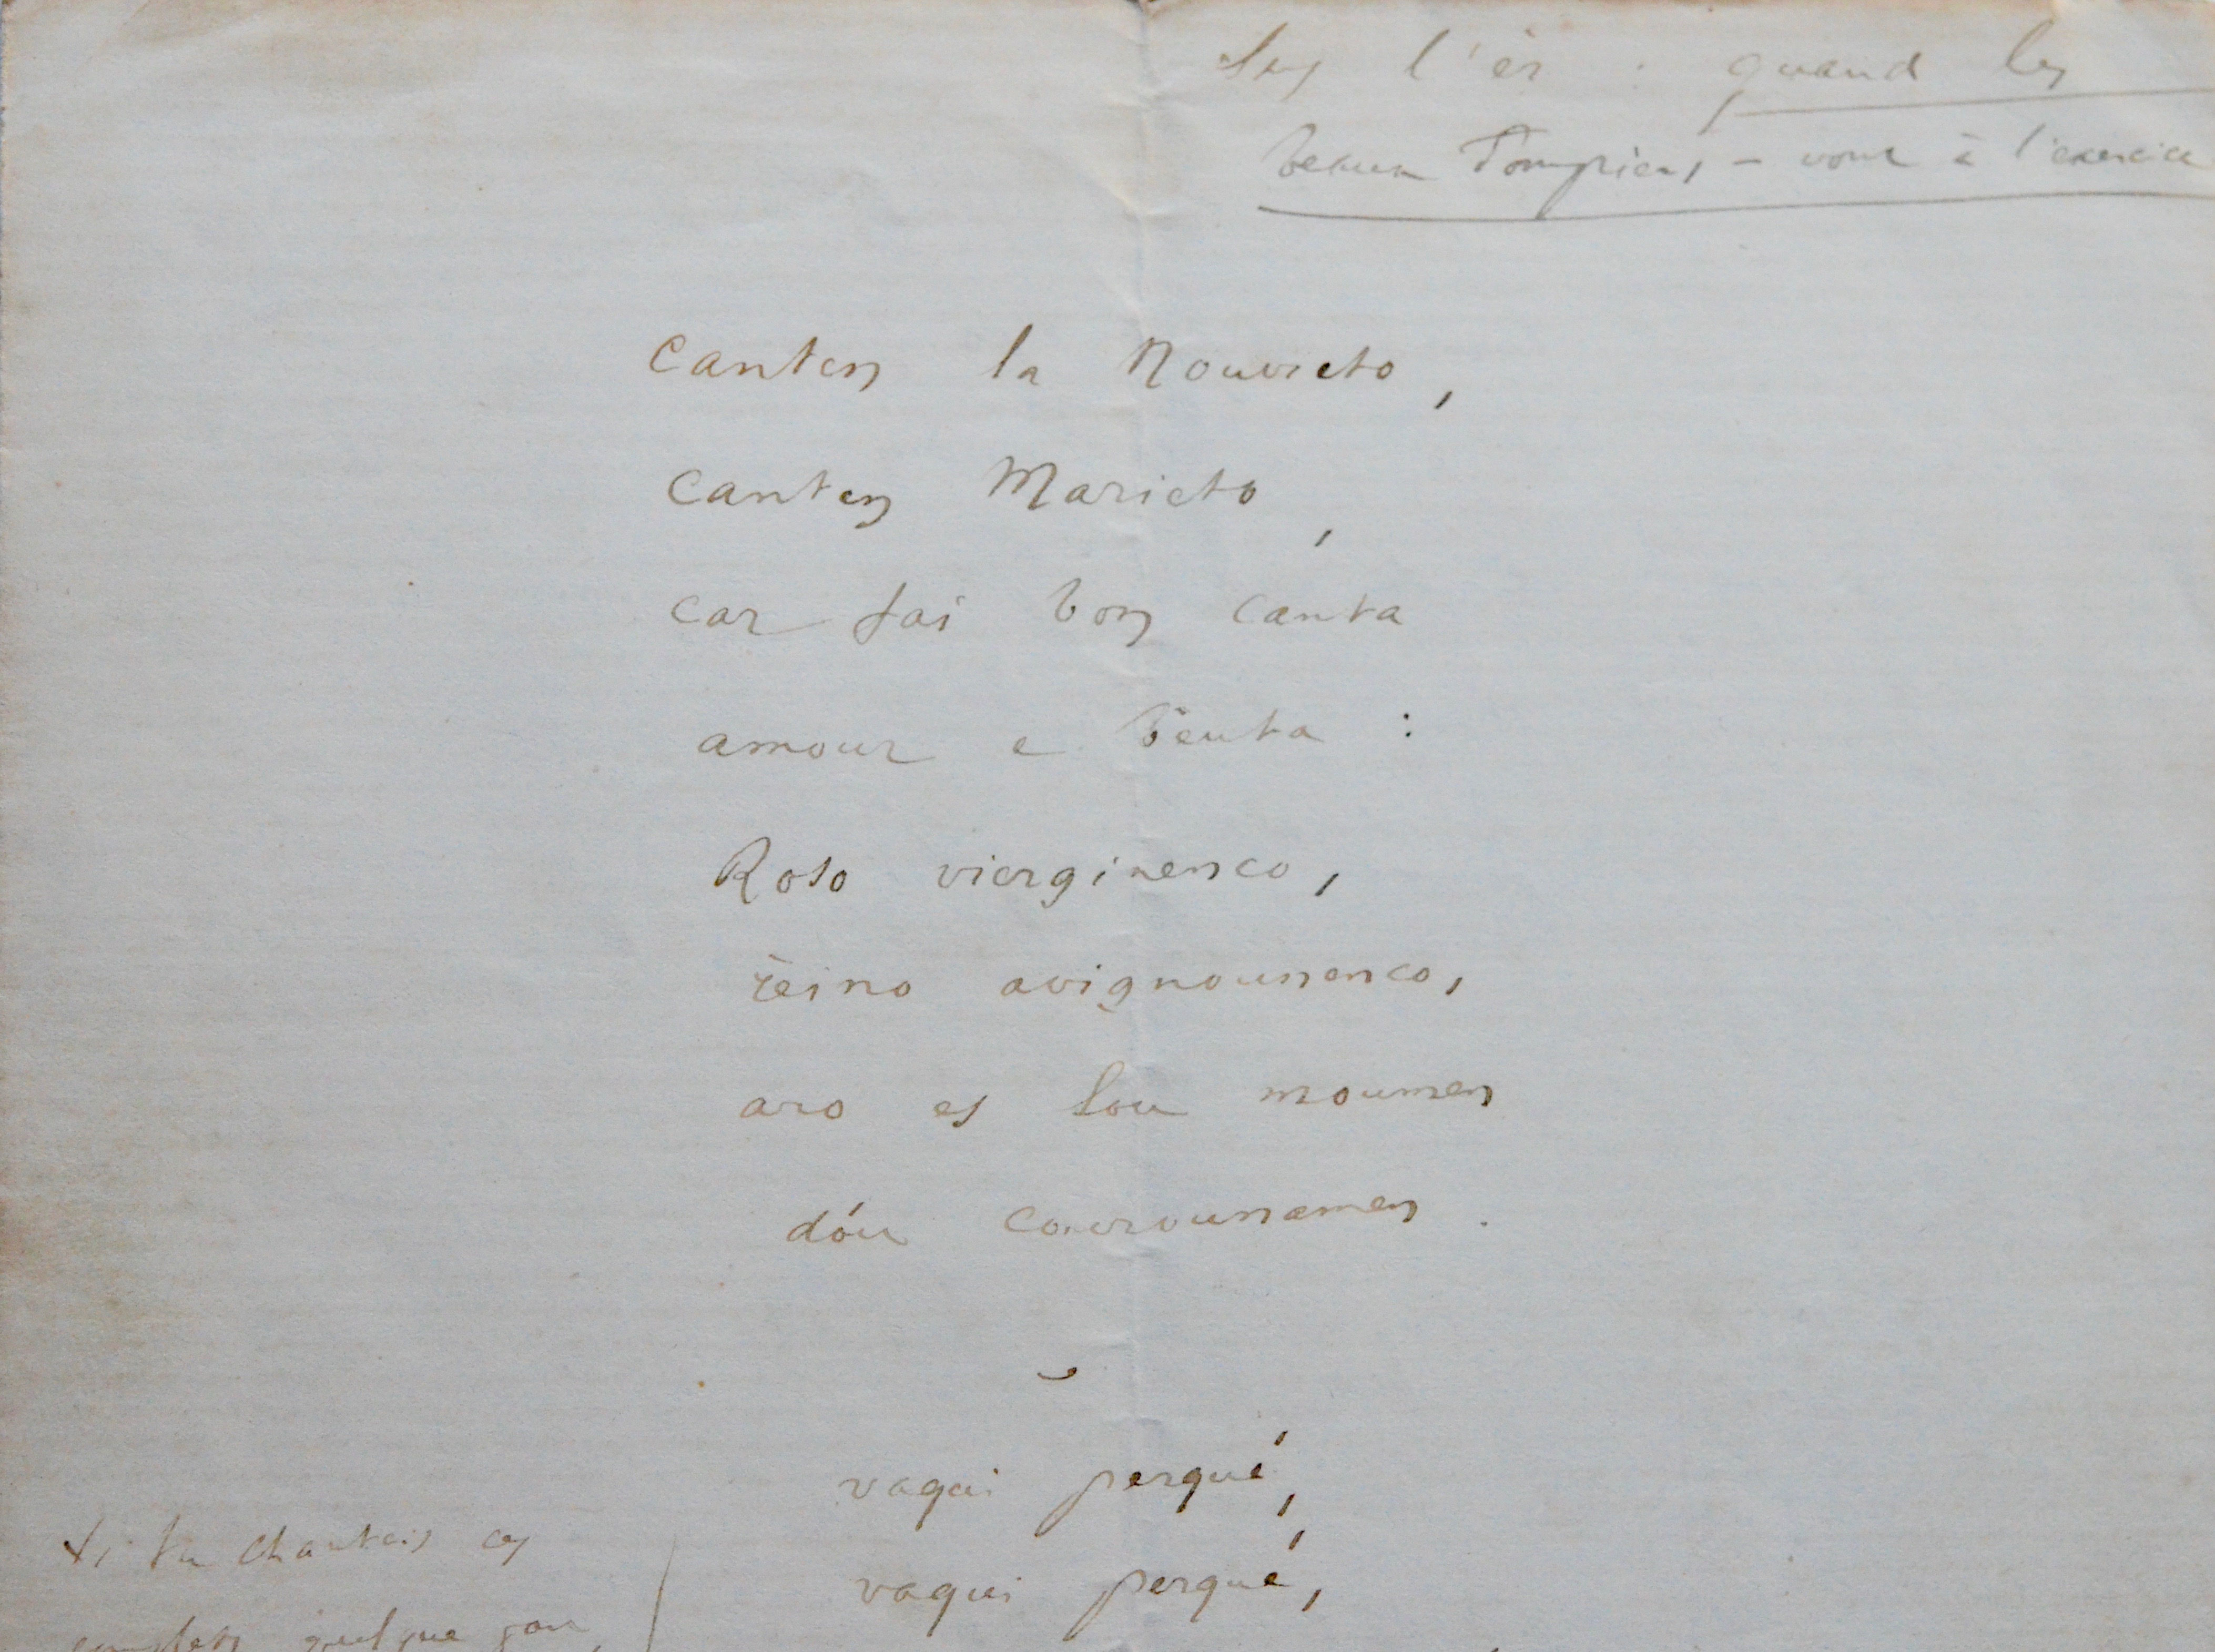 Sus l'èr : quand les
beaux Pompiers - vont à l'exercice
Canten la Nouvieto,
Canten Marieto,
car fai bon canta
amour e bèuta :
Roso vierginenco,
rèino avignounenco,
aro es lou moumen
dóu courounamen.
vaqui perqué,
vaqui perqué,
si tu chantais ces
couplets quelque jour,